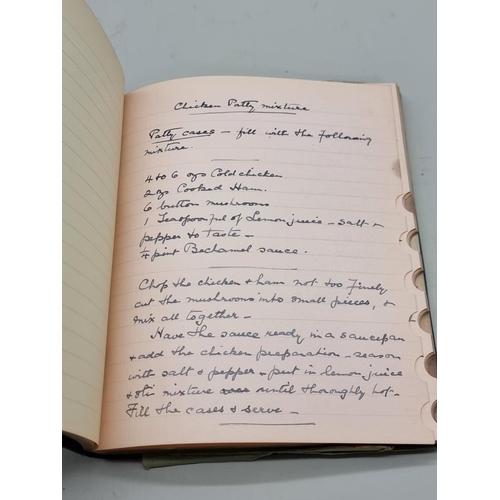 Chicken Patty mixture
Patty cases – fill with the following
mixture.
4 to 6 ozs Cold chicken
2 ozs Cooked Ham.
6 button mushrooms
1 Teaspoonful of Lemon juice – salt &
pepper to taste –
¼ pint Bechamel sauce.
Chop the chicken & ham not too finely
cut the mushrooms into small pieces, &
mix all together –
Have the sauce ready in a saucepan
& add the chicken preparation – season
with salt & pepper – put in lemon juice
& stir mixture until thoroughly hot –
Fill the cases & serve –